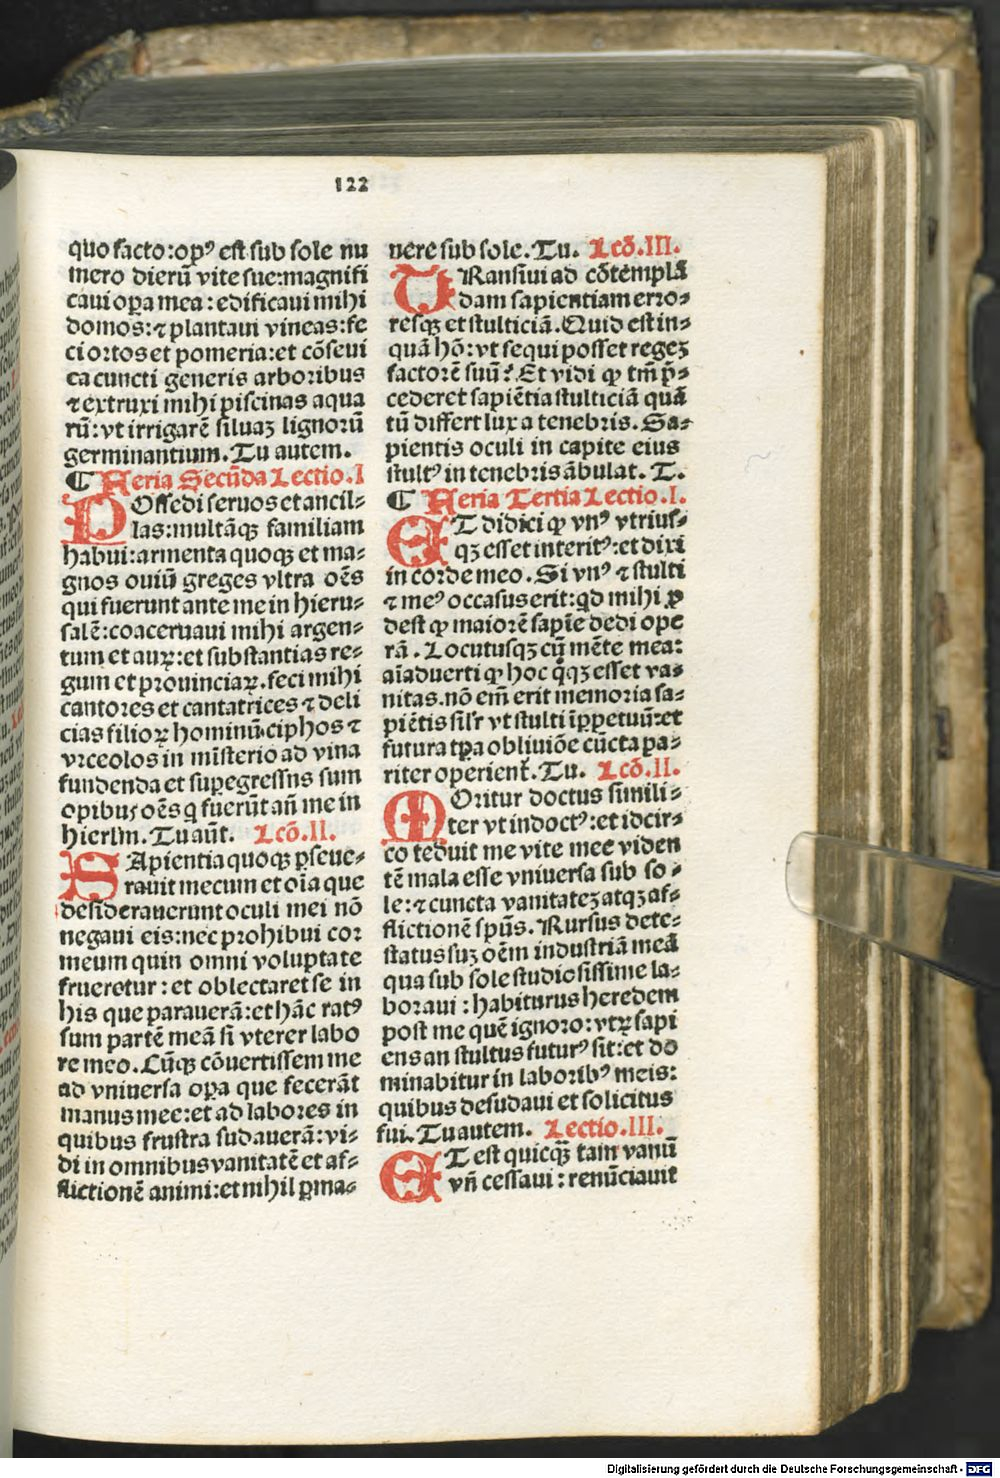 122
quo facto:opꝰ est sub sole nu
mero dierū vite sue:magnifi
caui oꝑa mea: edificaui mihi
domos:⁊ plantaui vineas:fe
ci ortos et pomeria:et cōseui
ea cuncti generis arboribus
⁊ extruxi mihi piscinas aqua
rū:vt irrigarē siluaꝫ lignorū
germinantium. Tu autem.
¶ Feria Secūda Lectio.I
POssedi seruos et ancil⸗
las:multāqꝫ familiam
habui:armenta quoqꝫ et ma⸗
gnos ouiū greges vltra oēs
qui fuerunt ante me in hieru⸗
salē:coaceruaui mihi argen⸗
tum et auꝝ:et substantias re⸗
gum et prouinciaꝝ.feci mihi
cantores et cantatrices ⁊ deli
cias filioꝝ hominū.ciphos ⁊
vrceolos in mīsterio ad vina
fundenda et suꝑegressns sum
opibus oēs q fuerūt añ me in
hierlm. Tu aūt. Lcō.II.
SApientia quoqꝫ ꝑseue⸗
rauit mecum et oīa que
desiderauerunt oculi mei nō
negaui eis:nec prohibui cor
meum quin omni voluptate
frueretur: et oblectaret se in
his que paraueră:et hāc ratꝰ
sum partē meā si vterer labo
re meo. Cūqꝫ cōuertissem me
ad vniuersa oꝑa que fecerāt
manus mee:et ad labores in
quibus frustra sudauerā:vi⸗
di in omnibus vanitatē et af⸗
flictionē animi:et nihil ꝑma⸗
nere sub sole. Tu. Lcō.III.
TRansiui ad cōtemplā
dam sapientiam erro⸗
resqꝫ et stulticiā. Quid est in⸗
quā hō: vt sequi posset regeꝫ
factorē suū? Et vidi qꝫ tm̄ p̄⸗
cederet sapiētia stulticiā quā
tū differt lux a tenebris. Sa⸗
pientis oculi in capite eius
stultꝰ in tenebris ābulat. T.
¶ Feria Tertia Lectio.I.
ET didici ꝙ vnꝰ vtrius⸗
qꝫ esset interitꝰ:et dixi
in corde meo. Si vnꝰ ⁊ stulti
⁊ meꝰ occasus erit:qd mihi ꝓ
dest ꝙ maiorē sapīe dedi ope
rā. Locutusqꝫ cū mēte mea:
aīaduerti ꝙ hoc qꝫqꝫ esset va⸗
nitas.nō em̄ erit memoria sa⸗
piētis silr vt stulti īꝑpetuū:et
futura tꝑa obliuiōe cūcta pa⸗
riter operient̄. Tu. Lcō.II.
MOritur doctus simili⸗
ter vt indoctꝰ:et idcir⸗
co teduit me vite mee viden
tē mala esse vniuersa sub so⸗
le:⁊ cuncta vanitateꝫ atqꝫ af⸗
flictionē spūs. Rursus dete⸗
status suꝫ oēm industriā meā
qua sub sole studiosissime la⸗
boraui: habiturus heredem
post me quē ignoro: vtꝝ sapi
ens an stultus futurꝰ sit:et do
minabitur in laboribꝰ meis:
quibus desudaui et solicitus
fui. Tu autem. Lectio.III.
ET est quicqꝫ tam vanū
vñ cessaui: renūciauit
Digitalisierung gefördert durch die Deutsche Forschungsgemeinschaft - DFG